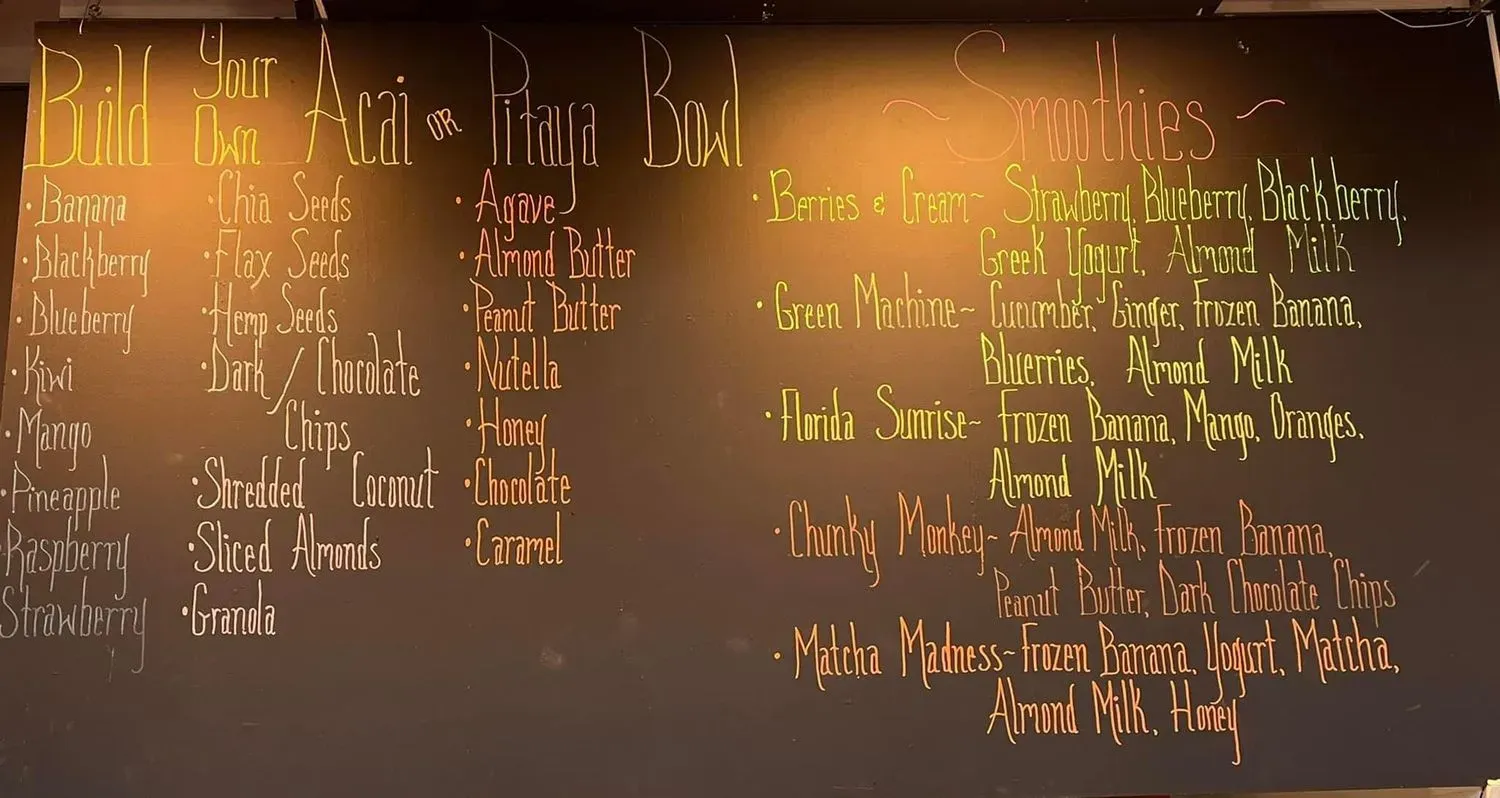 Build Your Own Acai OR Pitaya Bowl
• Banana
• Blackberry
• Blueberry
• Kiwi
• Mango
• Pineapple
• Raspberry
Strawberry
• Chia Seeds
• Flax Seeds
• Hemp Seeds
• Dark / Chocolate
Chips
• Shredded Coconut
• Sliced Almonds
• Granola
• Agave
• Almond Butter
• Peanut Butter
• Nutella
• Honey
• Chocolate
• Caramel
~ Smoothies ~
• Berries & Cream~ Strawberry, Blueberry, Blackberry,
Greek Yogurt, Almond Milk
• Green Machine~ Cucumber, Ginger, Frozen Banana,
Bluerries, Almond Milk
• Florida Sunrise~ Frozen Banana, Mango, Oranges,
Almond Milk
• Chunky Monkey~ Almond Milk, Frozen Banana,
Peanut Butter, Dark Chocolate Chips
• Matcha Madness~ Frozen Banana, Yogurt, Matcha,
Almond Milk, Honey